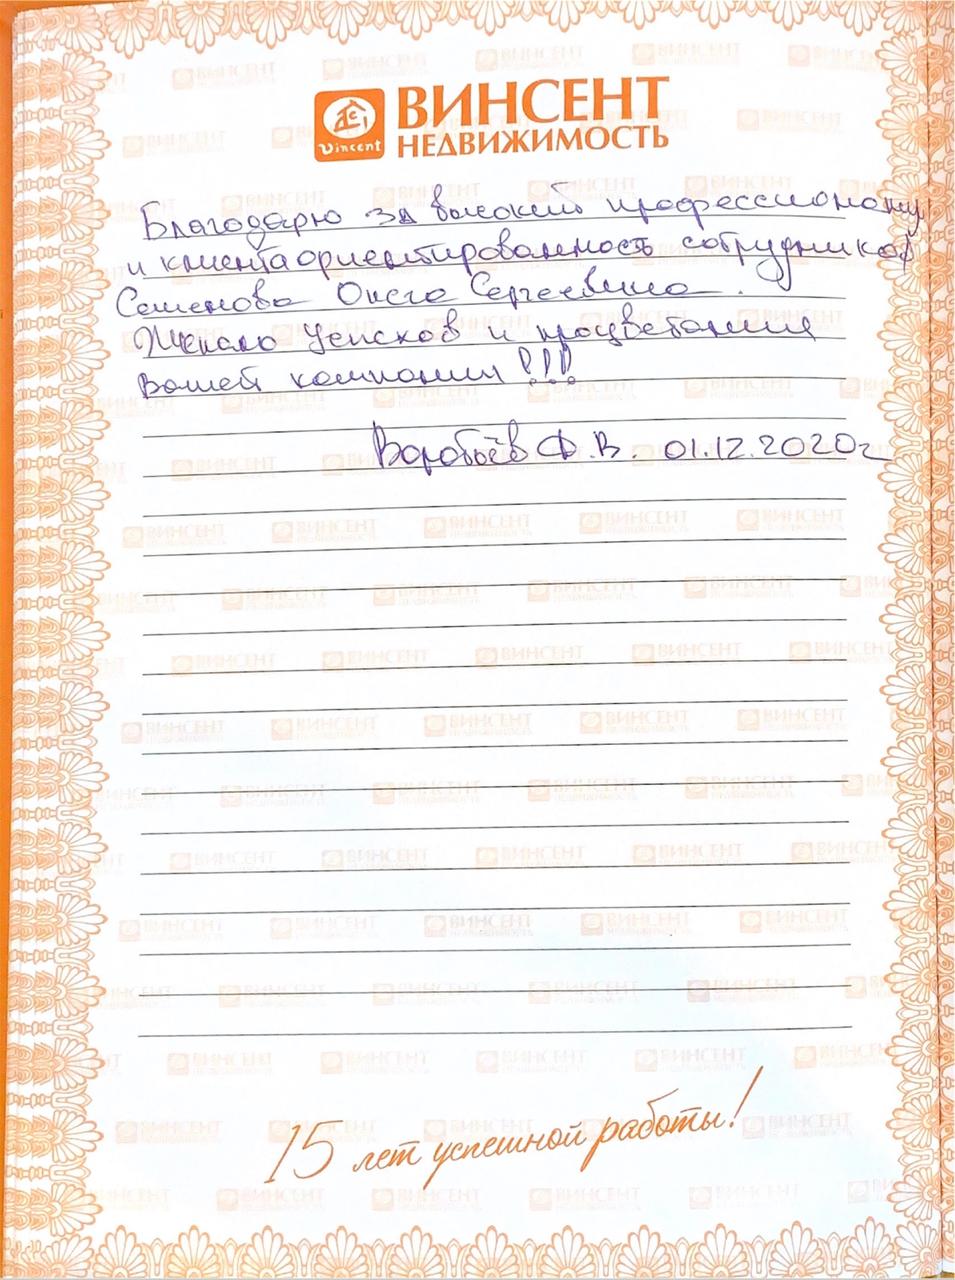 Vincent
ВИНСЕНТ
НЕДВИЖИМОСТЬ
Благодарю за высокий профессионому
и клиентаориентированность сотрудников
Семенова Олега Сергеевича.
Желаю Успехов и процветания
вашей компании!!!
Воробьёв Ф.В. 01.12.2020г
15 лет успешной работы!